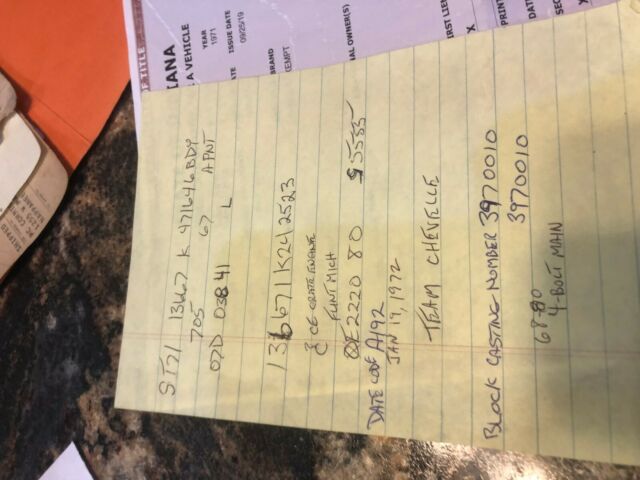 OF TITLE
IANA
A VEHICLE
YEAR
1971
ISSUE DATE
09/25/19
BRAND
EXEMPT
AL OWNER(S)
IRST LIEN
X
PRINT
DAT
X
ST71 13667 K 971646 BDY
705 67 A PNT
07D 03841 L
13667 1K242523
CE CRATE ENGINE
FLINT MICH
2220 80 $5535
DATE CODE A192
JAN 19, 1972
TEAM CHEVELLE
BLOCK CASTING NUMBER 3970010
3970010
68-80
4-BOLT MAIN